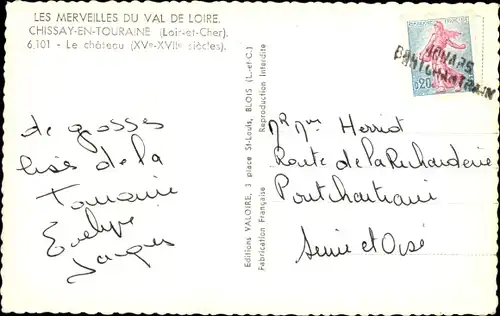 LES MERVEILLES DU VAL DE LOIRE.
CHISSAY-EN-TOURAINE (Loir-et-Cher).
6.101 - Le château (XVe-XVIIe siècles).
de grosses
bises de la
Touraine
Evelyne
Jacques
Editions VALOIRE, 3 place St-Louis, BLOIS (L.-et-C.)
Fabrication Française Reproduction Interdite
0,20
PONTCHARTRAIN
Mr Mme Herriot
Route de la Richarderie
Pontchartrain
Seine et Oise